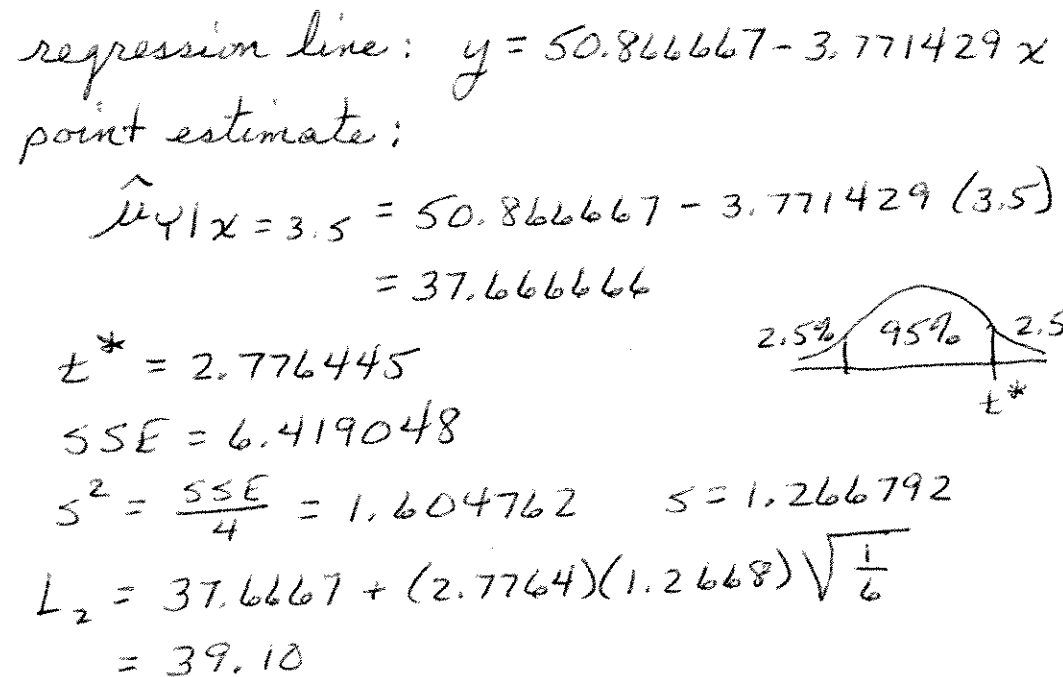 regression line: y = 50.866667 - 3.771429 x
point estimate:
μ̂_Y|x=3.5 = 50.866667 - 3.771429 (3.5)
= 37.666666
2.5% 95% 2.5
t*
t* = 2.776445
SSE = 6.419048
s² = SSE/4 = 1.604762 s = 1.266792
L₂ = 37.6667 + (2.7764)(1.2668)√(1/6)
= 39.10